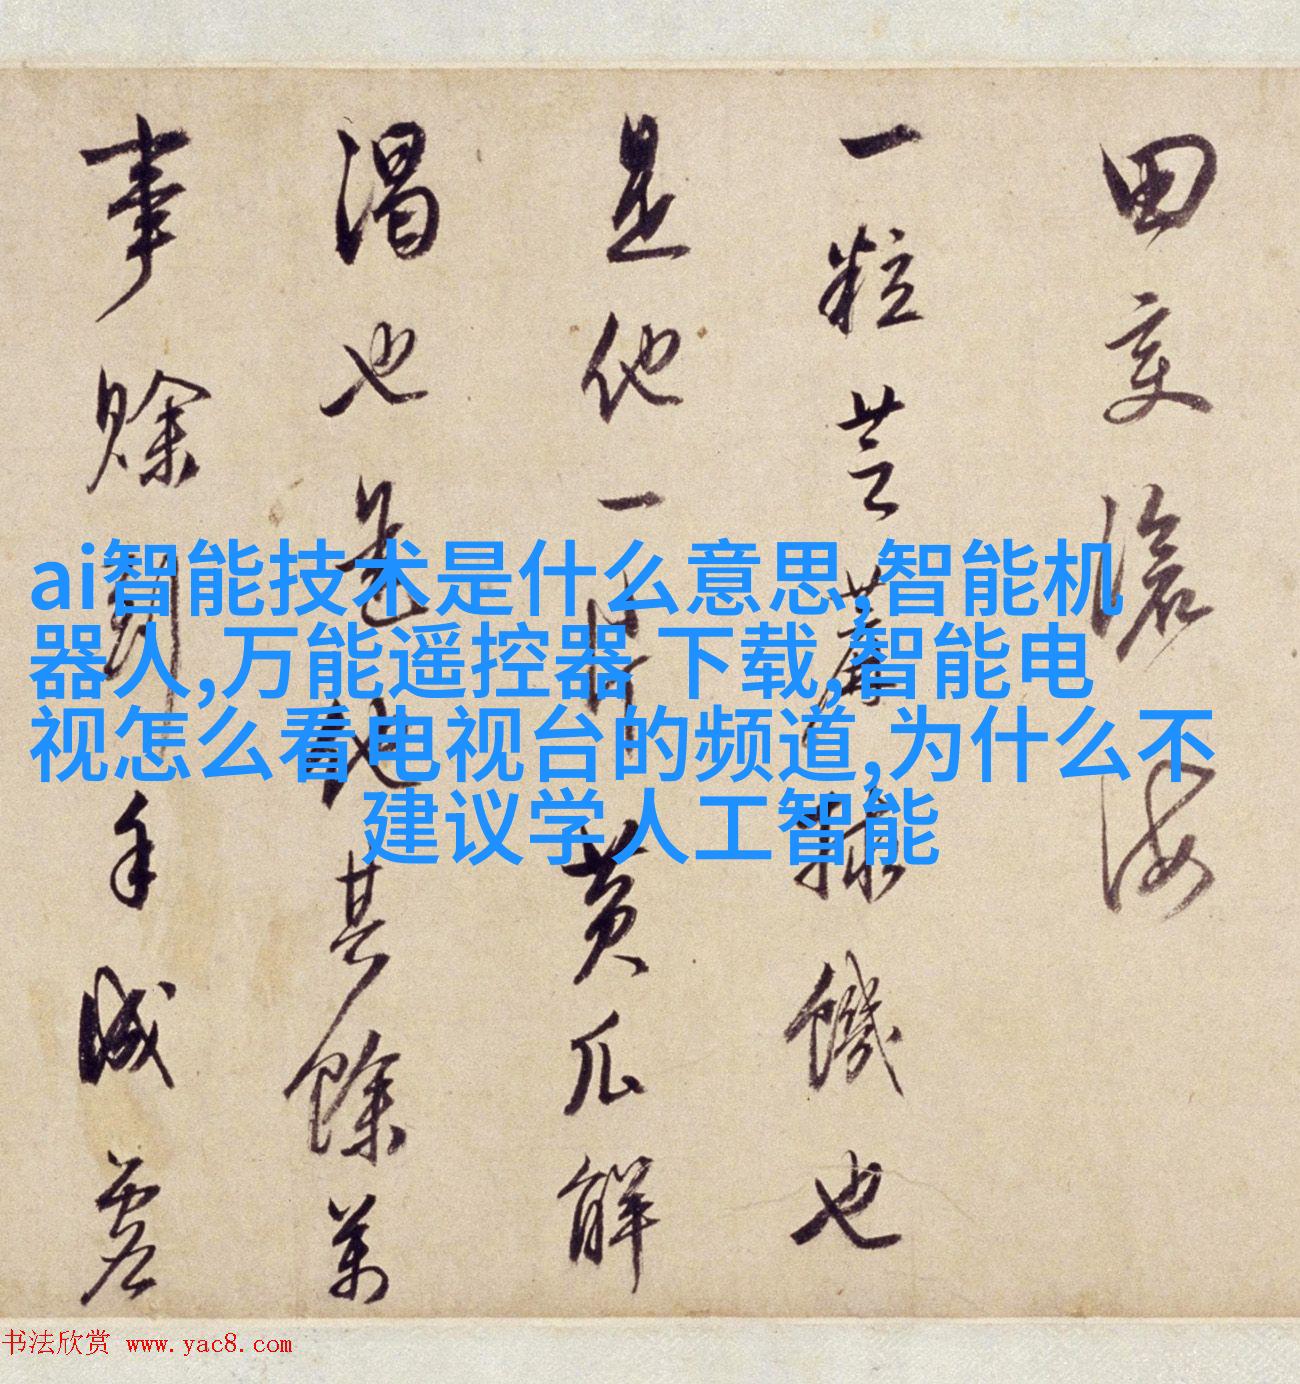 田变滄海
一粒芝蔴饑也
是他一片黄瓜解
渴也是他其餘萬
事賒到手
ai智能技术是什么意思,智能机
器人,万能遥控器 下载,智能电
视怎么看电视台的频道,为什么不
建议学人工智能
书法欣赏 www.yac8.com